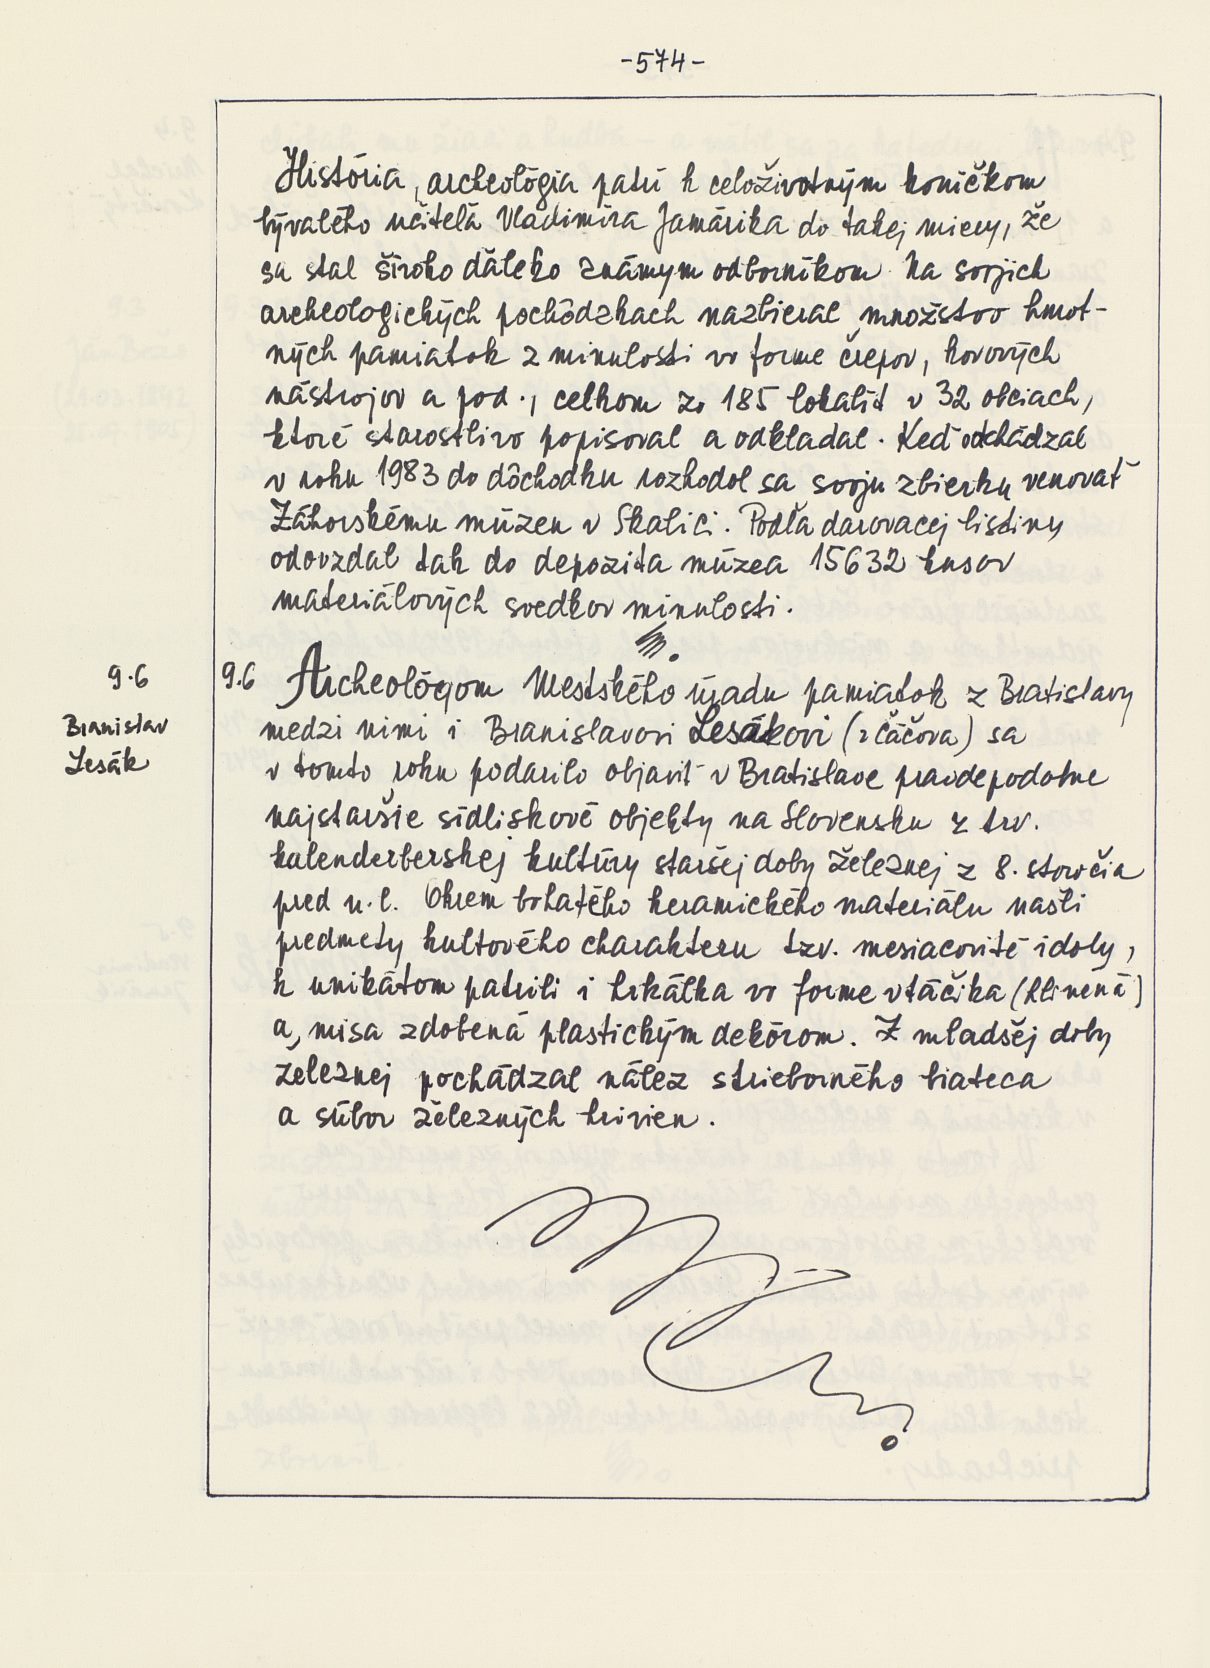 -574-
História, archeológia patrí k celoživotným koníčkom
bývalého učiteľa Vladimíra Jamárika do takej miery, že
sa stal široko ďaleko známym odborníkom. Na svojich
archeologických pochôdzkach nazbieral množstvo hmot-
ných pamiatok z minulosti vo forme črepov, kovových
nástrojov a pod., celkom zo 185 lokalít v 32 obciach,
ktoré starostlivo popisoval a odkladal. Keď odchádzal
v roku 1983 do dôchodku rozhodol sa svoju zbierku venovať
Záhorskému múzeu v Skalici. Podľa darovacej listiny
odovzdal tak do depozita múzea 15632 kusov
materiálových svedkov minulosti.
9.6
Branislav
Lesák
9.6 Archeológom Mestského úradu pamiatok z Bratislavy
medzi nimi i Branislavovi Lesákovi (z Čáčova) sa
v tomto roku podarilo objaviť v Bratislave pravdepodobne
najstaršie sídliskové objekty na Slovensku z tzv.
kalenderberskej kultúry staršej doby železnej z 8. storočia
pred n.l. Okrem bohatého keramického materiálu našli
predmety kultového charakteru tzv. mesiacovité idoly,
k unikátom patrili i hrkálka vo forme vtáčika (hlinená)
a, misa zdobená plastickým dekórom. Z mladšej doby
železnej pochádzal nález strieborného biateca
a súbor železných hrivien.